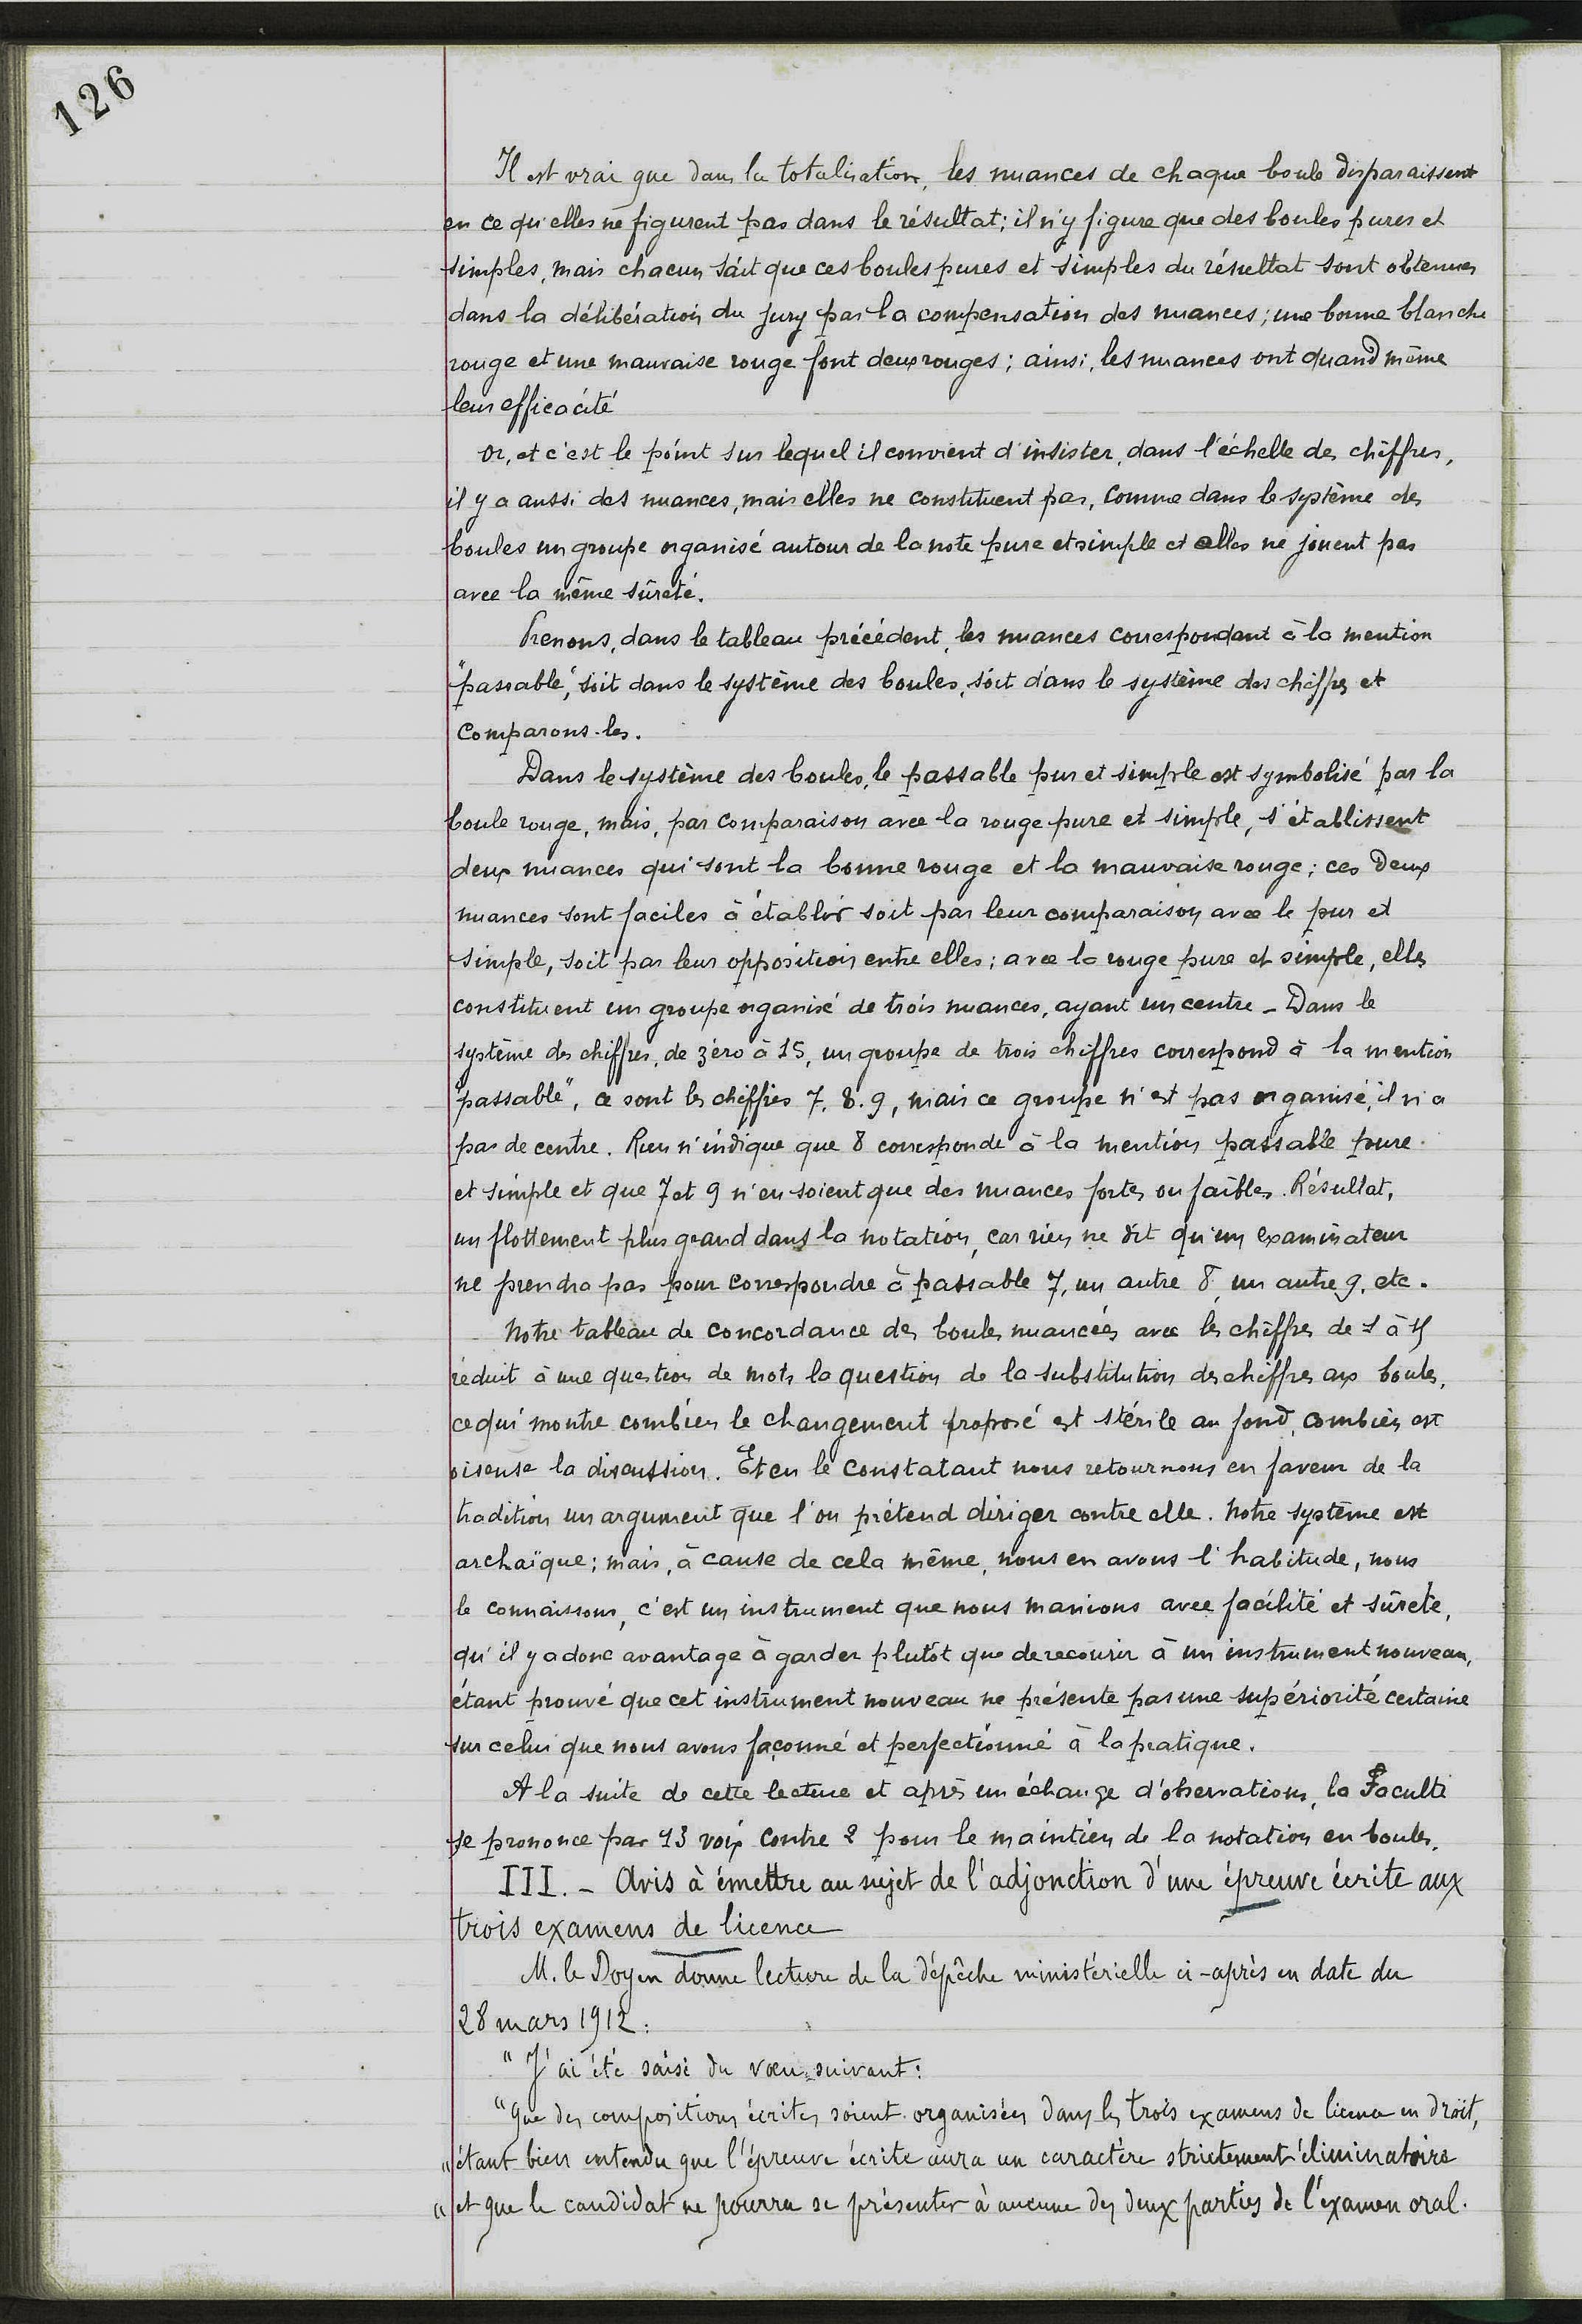 126
Il est vrai que dans la totalisation, les nuances de chaque boule disparaissent
en ce qu'elles ne figurent pas dans le résultat; il n'y figure que des boules pures et
simples, mais chacun sait que ces boules pures et simples du résultat sont obtenues
dans la délibération du jury par la compensation des nuances; une bonne blanche
rouge et une mauvaise rouge font deux rouges; ainsi, les nuances ont quand même
leur efficacité
Or, et c'est le point sur lequel il convient d'insister, dans l'échelle des chiffres,
il y a aussi des nuances, mais elles ne constituent pas, comme dans le système des
boules un groupe organisé autour de la note pure et simple et elles ne jouent pas
avec la même sûreté.
Prenons, dans le tableau précédent, les nuances correspondant à la mention
"passable", soit dans le système des boules, soit dans le système des chiffres et
comparons-les.
Dans le système des boules, le passable pur et simple est symbolisé par la
boule rouge, mais, par comparaison avec la rouge pure et simple, s'établissent
deux nuances qui sont la bonne rouge et la mauvaise rouge; ces deux
nuances sont faciles à établir soit par leur comparaison avec le pur et
simple, soit par leur opposition entre elles; avec la rouge pure et simple, elles
constituent un groupe organisé de trois nuances, ayant un centre - Dans le
système des chiffres, de zéro à 15, un groupe de trois chiffres correspond à la mention
"passable", ce sont les chiffres 7. 8. 9, mais ce groupe n'est pas organisé, il n'a
pas de centre. Rien n'indique que 8 corresponde à la mention passable pure
et simple et que 7 et 9 n'en soient que des nuances fortes ou faibles. Résultat,
un flottement plus grand dans la notation, car rien ne dit qu'un examinateur
ne prendra pas pour correspondre à passable 7, un autre 8, un autre 9, etc.
Notre tableau de concordance des boules nuancées avec les chiffres de 1 à 15
réduit à une question de mots la question de la substitution des chiffres aux boules,
ce qui montre combien le changement proposé est stérile au fond, combien est
oiseuse la discussion. Et en le constatant nous retournons en faveur de la
tradition un argument que l'on prétend diriger contre elle. Notre système est
archaïque; mais, à cause de cela même, nous en avons l'habitude, nous
le connaissons, c'est un instrument que nous manions avec facilité et sûreté,
qu'il y a donc avantage à garder plutôt que de recourir à un instrument nouveau,
étant prouvé que cet instrument nouveau ne présente pas une supériorité certaine
sur celui que nous avons façonné et perfectionné à la pratique.
A la suite de cette lecture et après un échange d'observations, la Faculté
se prononce par 13 voix contre 2 pour le maintien de la notation en boules.
III. - Avis à émettre au sujet de l'adjonction d'une épreuve écrite aux
trois examens de licence
M. le Doyen donne lecture de la dépêche ministérielle ci-après en date du
28 mars 1912:
"J'ai été saisi du vœu suivant:
"Que des compositions écrites soient organisées dans les trois examens de licence en droit,
"étant bien entendu que l'épreuve écrite aura un caractère strictement éliminatoire
"et que le candidat ne pourra se présenter à aucune des deux parties de l'examen oral.